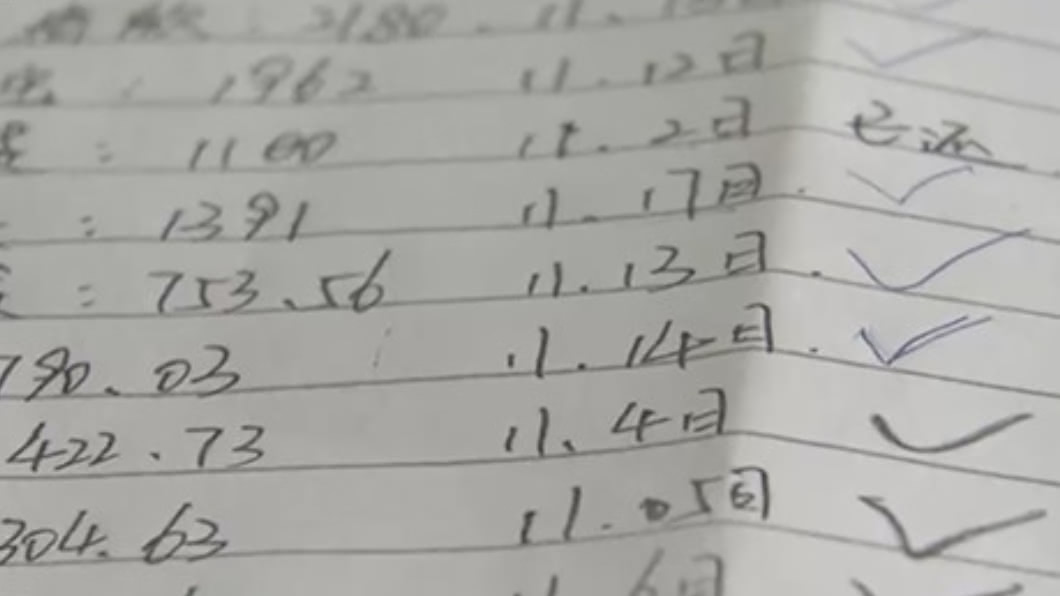 2180. 11.
: 1962 11.12日
: 1100 11.2日 已还
: 1391 11.17日.
: 753.56 11.13日.
790.03 11.14日.
422.73 11.4日
304.63 11.05日
6日